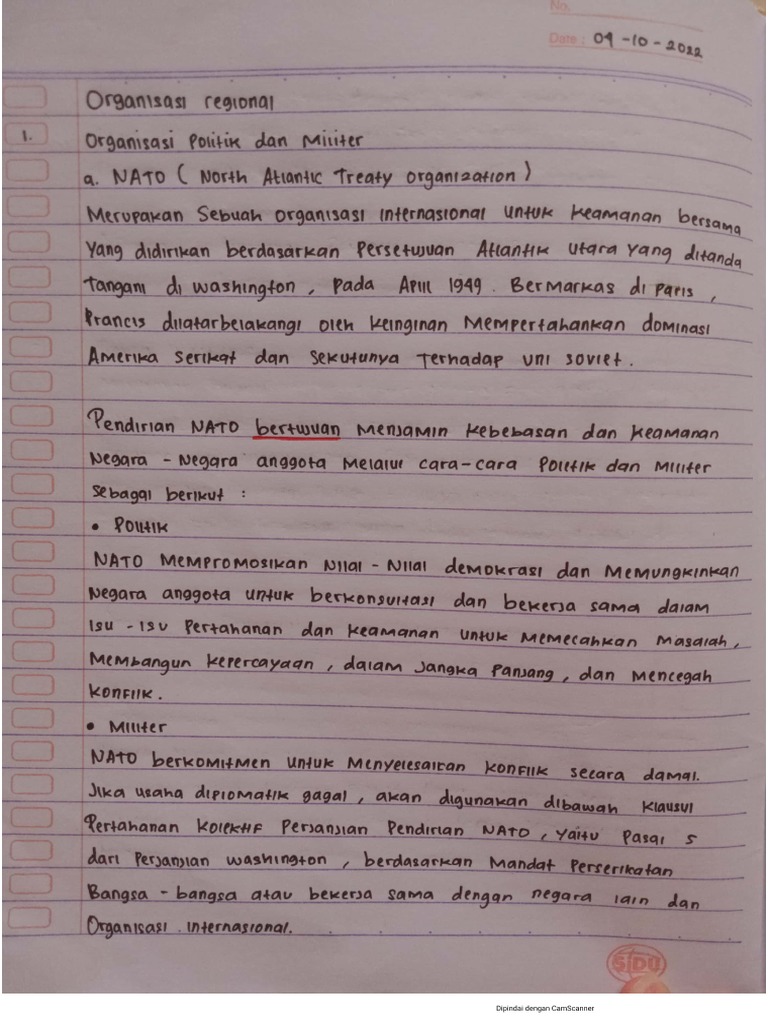 No.
Date : 09 - 10 - 2022
Organisasi regional
1. Organisasi Politik dan Militer
a. NATO ( North Atlantic Treaty Organization )
Merupakan Sebuah organisasi internasional untuk keamanan bersama
yang didirikan berdasarkan Persetujuan Atlantik Utara yang ditanda
tangani di washington , Pada April 1949 . Bermarkas di Paris ,
Prancis dilatarbelakangi oleh keinginan Mempertahankan dominasi
Amerika serikat dan sekutunya Terhadap uni soviet .
Pendirian NATO bertujuan Menjamin kebebasan dan keamanan
Negara - Negara anggota Melalui cara-cara Politik dan Militer
sebagai berikut :
• Politik
NATO Mempromosikan Nilai - Nilai demokrasi dan Memungkinkan
Negara anggota untuk berkonsultasi dan bekerja sama dalam
isu - isu Pertahanan dan keamanan untuk Memecahkan Masalah ,
Membangun kepercayaan , dalam Jangka Panjang , dan Mencegah
konflik .
• Militer
NATO berkomitmen untuk Menyelesaikan konflik secara damai.
Jika usaha diplomatik gagal , akan digunakan dibawah klausul
Pertahanan Kolektif Perjanjian Pendirian NATO , yaitu Pasal 5
dari Perjanjian washington , berdasarkan Mandat Perserikatan
Bangsa - bangsa atau bekerja sama dengan negara lain dan
Organisasi internasional.
SIDU
Dipindai dengan CamScanner